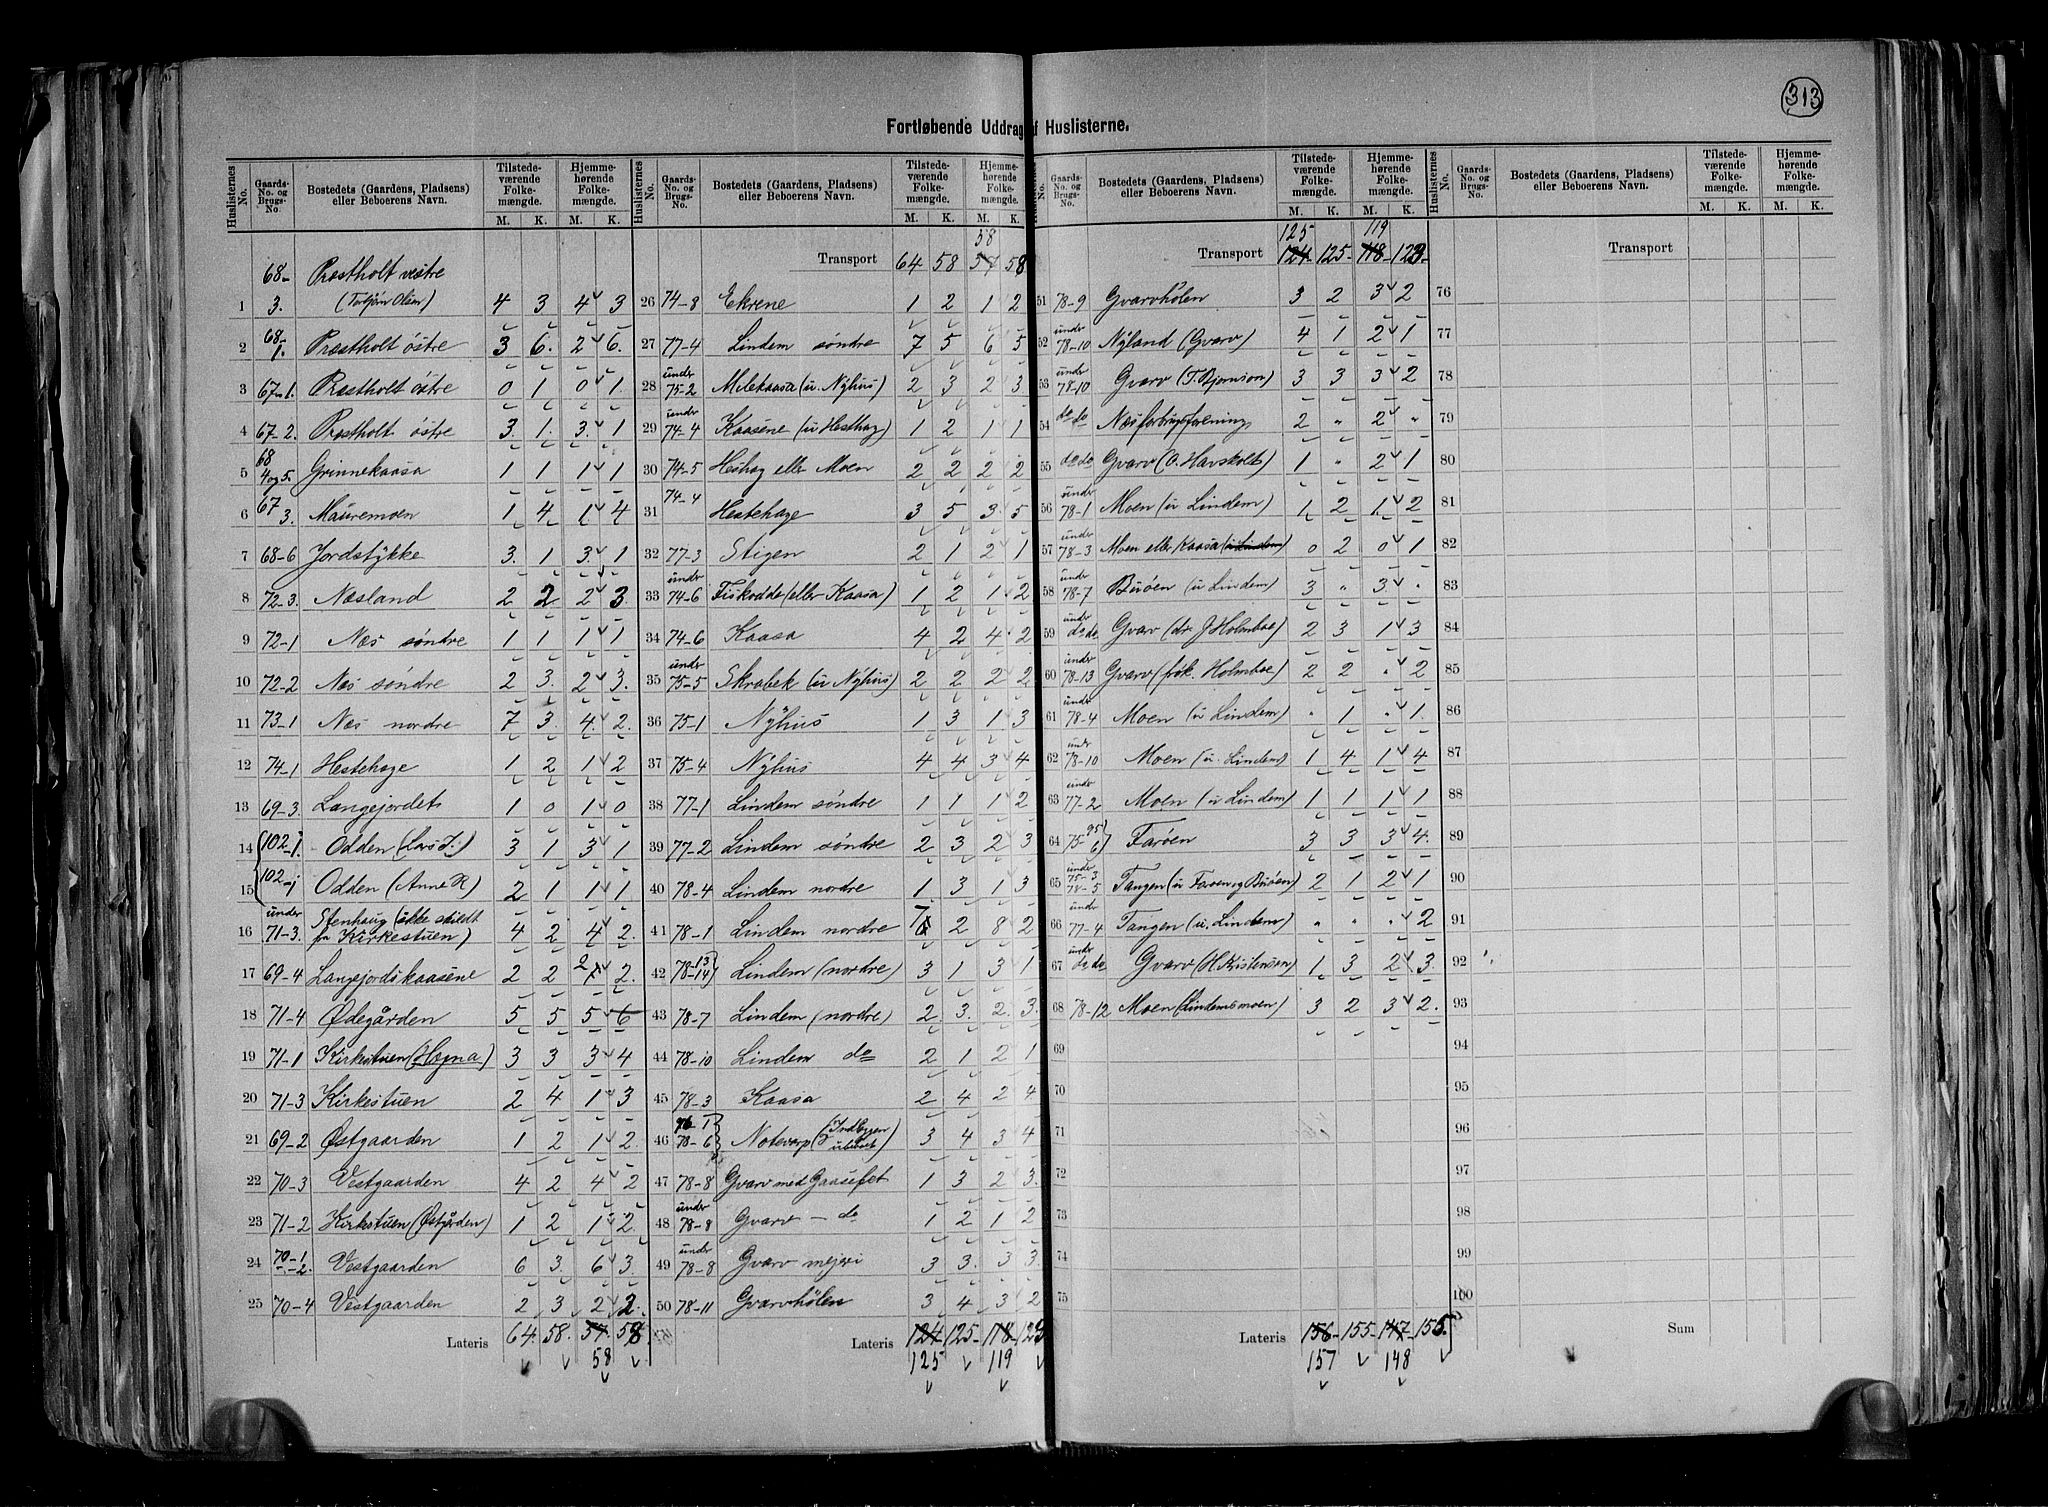 313
Fortløbende Uddrag af Huslisterne.
Huslisternes No. Gaards-No. og Brugs-No. Bostedets (Gaardens, Pladsens) eller Beboerens Navn. Tilstedeværende Folkemængde. M. K. Hjemmehørende Folkemængde. M. K.
1 68-3. Præstholt vestre (Torbjørn Olsen) 4 3 4 3
2 68-1. Præstholt östre 3 6. 2 6.
3 67-1. Præstholt östre 0 1 0 1.
4 67-2. Præstholt östre 3. 1. 3. 1
5 68 4 og 5. Grinnekaasa 1 1 1 1
6 67 3. Mauremoen 1 4 1 4
7 68-6 Jordstÿkke 3. 1 3. 1
8 72-3. Næsland 2 2 2 3
9 72-1 Næs söndre 1 1 1 1
10 72-2 Næs söndre 2 3. 2 3.
11 73-1 Næs nordre 7 3 4. 2.
12 74-1 Hestehage 1 2 1 2
13 69-3. Langejordet 1 0 1 0
14 102-1. Odden (Lars J.) 3 1 3 1
15 102-1 Odden (Anne R) 2 1 1 1
16 under 71-3. Stenhaug (ikke skildt fra Kirkestuen) 4 2 4 2.
17 69-4 Langejordskaasene 2 2 2 2.
18 71-4 Ødegården 5 5 5 6
19 71-1 Kirkestuen (Hogna) 3 3 3 4
20 71-3 Kirkestuen 2 4 1 3
21 69-2 Østgaarden 1 2 1 2.
22 70-3 Vestgaarden 4 2 4 2
23 71-2 Kirkstuen (Østgården) 1 2 1 2.
24 70-1-2. Vestgaarden 6 3. 6 3.
25 70-4 Vestgaarden 2 3 2 2.
Lateris 64. 58. 57. 58.
58
Huslisternes No. Gaards-No. og Brugs-No. Bostedets (Gaardens, Pladsens) eller Beboerens Navn. Tilstedeværende Folkemængde. M. K. Hjemmehørende Folkemængde. M. K.
58
Transport 64 58 57 58
26 74-8 Ekrene 1 2 1 2
27 77-4 Lindem söndre 7 5 6 5
28 under 75-2 Milekaasa (u. Nÿhus) 2 3 2 3
29 under 74-4 Kaasene (u Hesthag) 1 2 1 1
30 74-5 Hesthag eller Moen 2 2 2 2
31 74-4 Hestehage 3 5 3 5
32 77-3 Stigen 2 1 2 1
33 under 74-6 Fiskodde (eller Kaasa) 1 2 1 2
34 74-6 Kaasa 4 2 4 2
35 under 75-5 Skrabek (u Nÿhus) 2 2 2 2
36 75-1 Nÿhus 1 3 1 3
37 75-4 Nÿhus 4 4 3 4
38 77-1 Lindem söndre 1 1 1 2
39 77-2 Lindem söndre 2 3 2 3
40 78-4 Lindem nordre 1 3 1 3
41 78-1 Lindem nordre 7 2 8 2
42 78-13 14 Lindem (nordre) 3 1 3 1
43 78-7 Lindem (nordre) 2 3. 2. 3.
44 78-10 Lindem do 2 1 2 1
45 78-3 Kaasa 2 4 2 4
46 76-1 78-6 Notevarp 3 4 3 4
47 78-8 Gvarv med Gaasefet 1 3 2 3.
48 under 78-8 Gvarv - do 1 2 1 2
49 under 78-8 Gvarv mejeri 3 3. 3 3.
50 78-11 Gvarvhölen 3 4 3 2
Lateris 124- 125- 118- 123
125 119
No. Gaards-No. og Brugs-No. Bostedets (Gaardens, Pladsens) eller Beboerens Navn. Tilstedeværende Folkemængde. M. K. Hjemmehørende Folkemængde. M. K.
125 119
Transport 124- 125- 118- 123-
51 78-9 Gvarvhölen 3 2 3 2
52 under 78-10 Nÿland (Gvarv) 4 1 2 1
53 under 78-10 Gvarv (T. Bjørnson) 3 3 3 2
54 do do Næs forbrugsforening 2 " 2 "
55 do do Gvarv (O. Havskolt) 1 " 2 1
56 under 78-1 Moen (u Lindem) 1 2 1 2
57 under 78-3 Moen eller Kaasa (u Lindem) 0 2 0 1
58 under 78-7 Buöen (u Lindem) 3 " 3 "
59 under do do Gvarv (dr. J Holmboe) 2 3 1 3
60 under 78-13 Gvarv (frök. Holmboe) 2 2 " 2
61 under 78-4 Moen (u Lindem) " 1 " 1.
62 under 78-10 Moen (u. Lindem) 1 4 1 4
63 under 77-2 Moen (u Lindem) 1 1 1 1
64 75-6 95 Faröen 3 3 3 4.
65 under 75-3 78-5 Tangen (u Faröen og Buöen) 2 1 2 1
66 under 77-4 Tangen (u. Lindem) " " " 2
67 under do do Gvarv (H Kristenson) 1 3 2 3.
68 78-12 Moen (Lindemsmoen) 3 2 3 2.
69
70
71
72
73
74
75
Lateris 156- 155- 147- 155.
157 148
Huslisternes No. Gaards-No. og Brugs-No. Bostedets (Gaardens, Pladsens) eller Beboerens Navn. Tilstedeværende Folkemængde. M. K. Hjemmehørende Folkemængde. M. K.
Transport
76
77
78
79
80
81
82
83
84
85
86
87
88
89
90
91
92
93
94
95
96
97
98
99
100
Sum